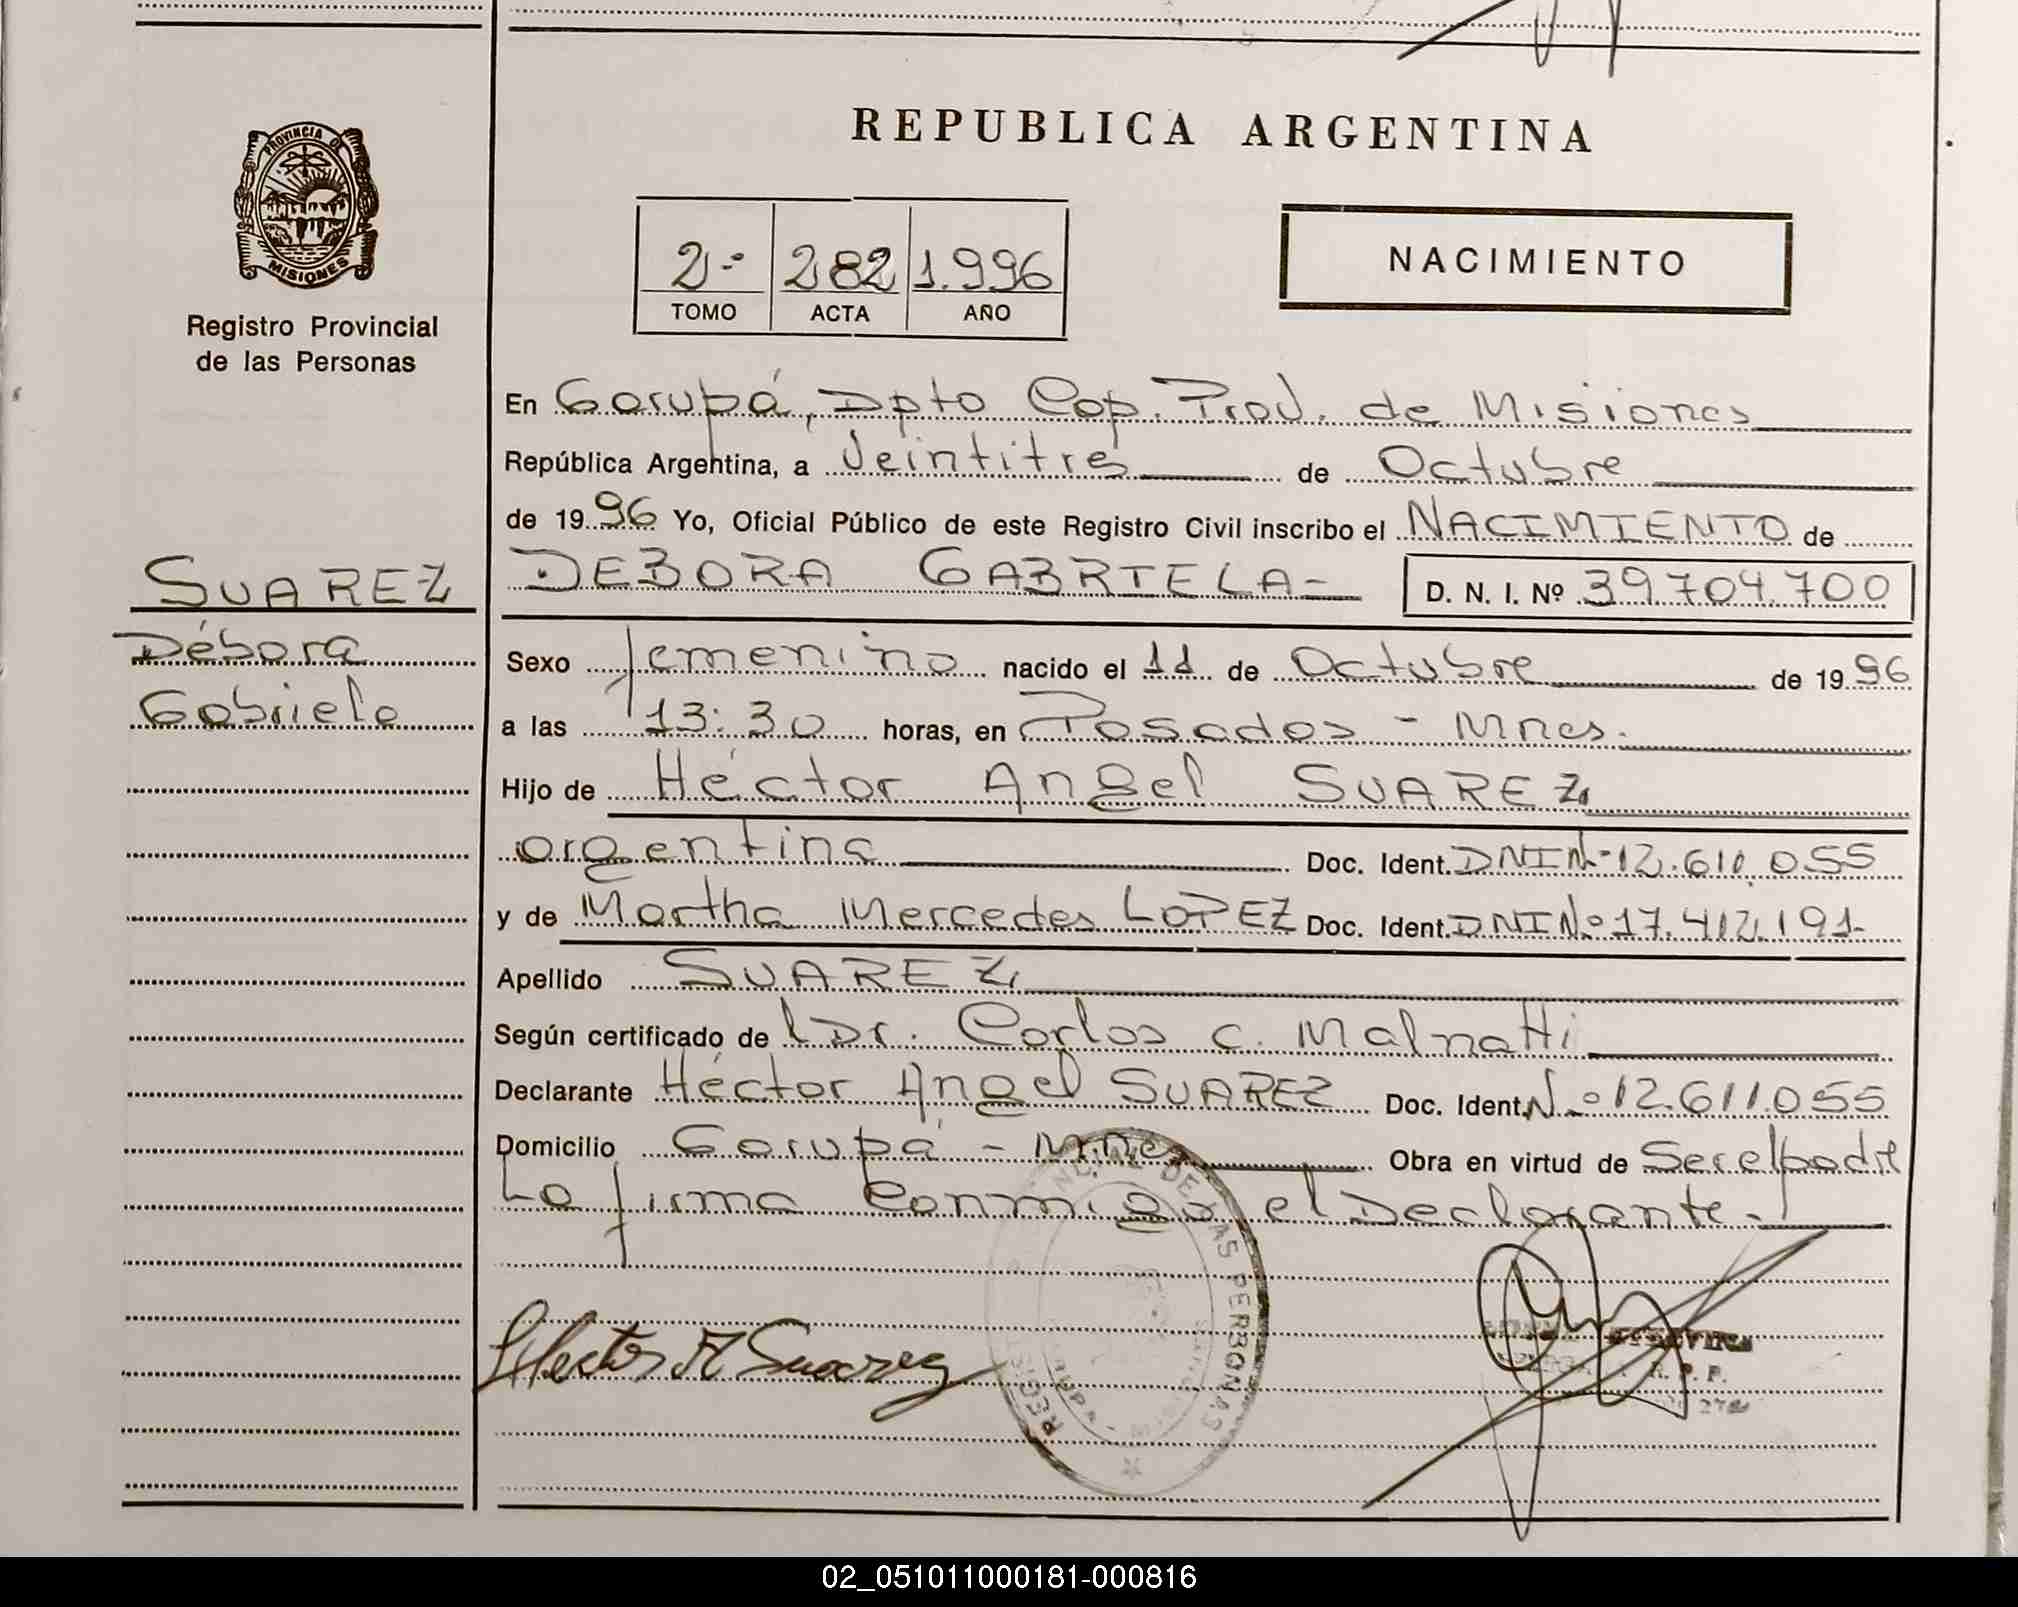 REPUBLICA ARGENTINA
PROVINCIA DE
MISIONES
Registro Provincial
de las Personas
2º 282 1.996
TOMO ACTA AÑO
NACIMIENTO
En Garupá, Dpto Cap. Prov. de Misiones
República Argentina, a Veintitrés de Octubre
de 1996 Yo, Oficial Público de este Registro Civil inscribo el NACIMIENTO de
SUAREZ
Débora
Gabriela
DEBORA GABRIELA- D. N. I. Nº 39.704.700
Sexo femenino nacido el 11 de Octubre de 1996
a las 13:30 horas, en Posadas - Mnes.
Hijo de Héctor Angel SUAREZ
argentina Doc. Ident. DNI Nº 12.611.055
y de Martha Mercedes LOPEZ Doc. Ident. DNI Nº 17.412.191-
Apellido SUAREZ
Según certificado de l Dr. Carlos C. Malnatti
Declarante Héctor Angel SUAREZ Doc. Ident. Nº 12.611.055
Domicilio Garupá - Mnes Obra en virtud de Ser el padre
La firma Conmigo el Declarante.-
Hector A Suarez
DE LAS PERSONAS
R. P. P.
02_051011000181-000816